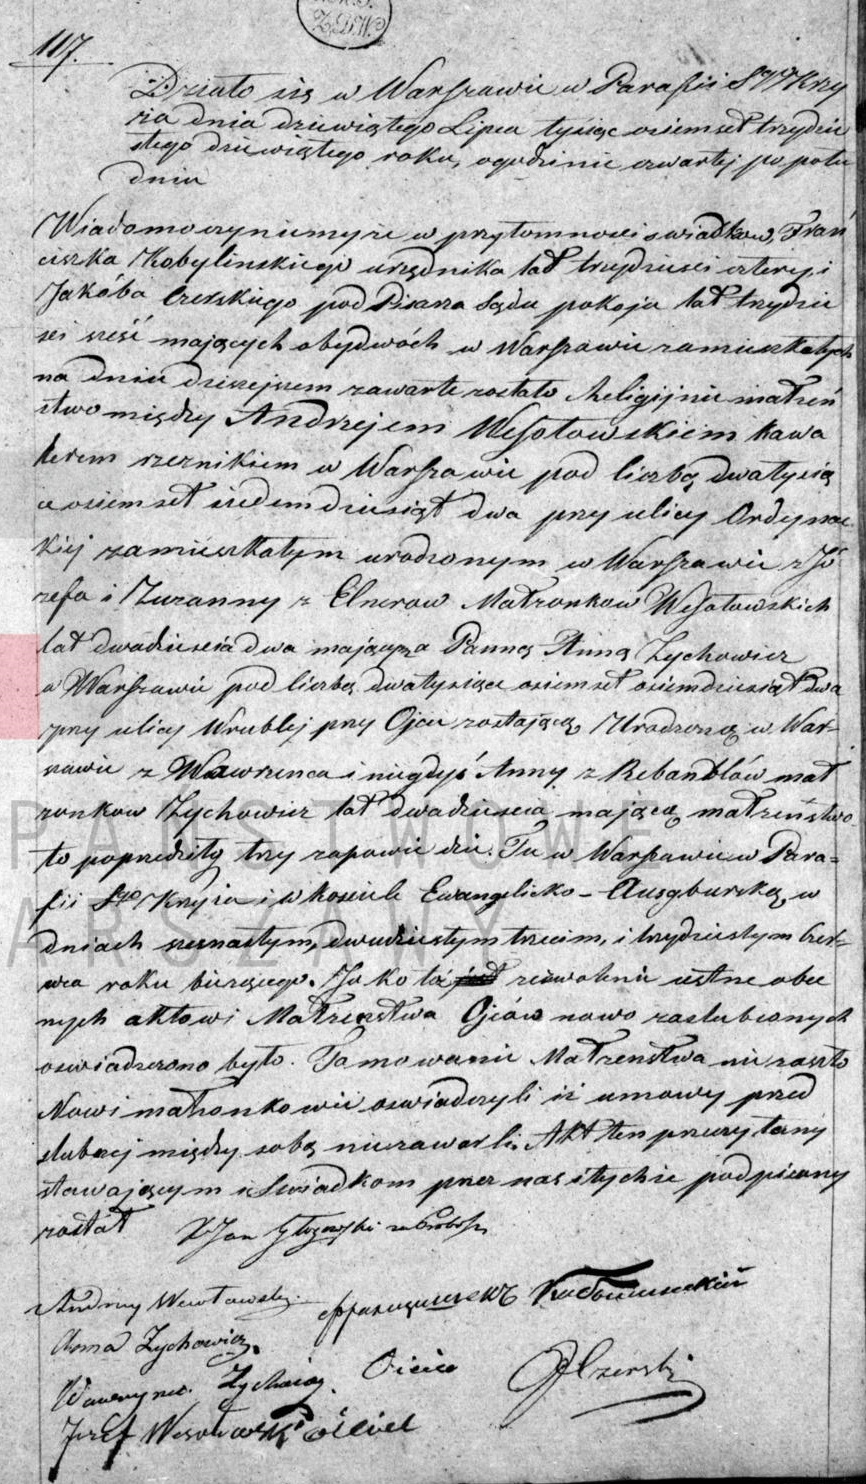 Z.D.W.
117.
Działo się w Warszawie w Parafii Sgo Krzy
ża dnia dziewiątego Lipca tysiąc osiemset trzydzie
stego dziewiątego roku, o godzinie czwartej po połu
dniu
Wiadomo czyniemy że w przytomności świadków, Fran
ciszka Kobylinskiego urzędnika lat trzydziesci cztery i
Jakóba Czerskiego pod Pisarza Sądu pokoju lat trzydzie
sci sześć mających obydwóch w Warszawie zamieszkałych
na dniu dzisiejszem zawarte zostało Religijnie małżeń
stwo między Andrzejem Wesołowskiem kawa
lerem rzeznikiem w Warszawie pod liczbą dwa tysią
ce osiemset siedemdziesiąt dwa przy ulicy Ordynac
kiej zamieszkałym urodzonym w Warszawie z Jó
zefa i Zuzanny z Elnerow Małżonkow Wesołowskich
lat dwadziescia dwa mającym a Panną Anną Zychowicz
w Warszawie pod liczbą dwa tysiące osiemset osiemdziesiąt dwa
przy ulicy Wrublej przy Ojcu zostającą Urodzoną w War-
szawie z Wawrzenca i niegdyś Anny z małż
zonkow Zychowicz lat dwadziescia mającą małżeństwo
to poprzedziły trzy zapowiedzie. Tu w Warszawie w Para=
fii Sgo Krzyża i w kosciele Ewangelicko - Ausgburską, w
dniach szesnastym, dwudziestym trzecim, i trzydziestym Czer-
wca roku bieżącego. Jako też zezwolenie ustne obec
nych aktowi Małżenstwa Ojców nowo zaslubionych
oswiadczono było. Tamowanie Małżenstwa nie zaszło
Nowi małżonkowie oswiadczyli iż umowy przed
slubnej między sobą nie zawarli. Akt ten przeczytany
stawającym i Swiadkom przez nas i tychże podpisany
został X Jan za Probosz
Andrzej Wesołowski
Anna Zychowicz
Wawrzyniec Zychowicz Oiciec JCzerski
Jozef Wesołowski oiciec
PAŃSTWOWE
WARSZAWY